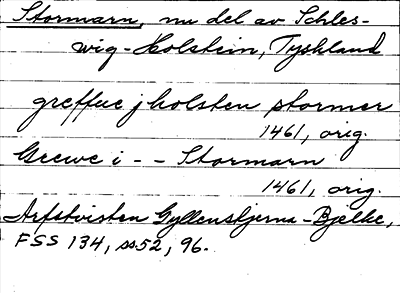 Stormarn, nu del av Schles-
wig-Holstein, Tyskland
greffue j holsten stormer
1461, orig.
Grewe i - - Stormarn
1461, orig.
Arfstvisten Gyllenstjerna-Bjelke,
FSS 134, ss 52, 96.